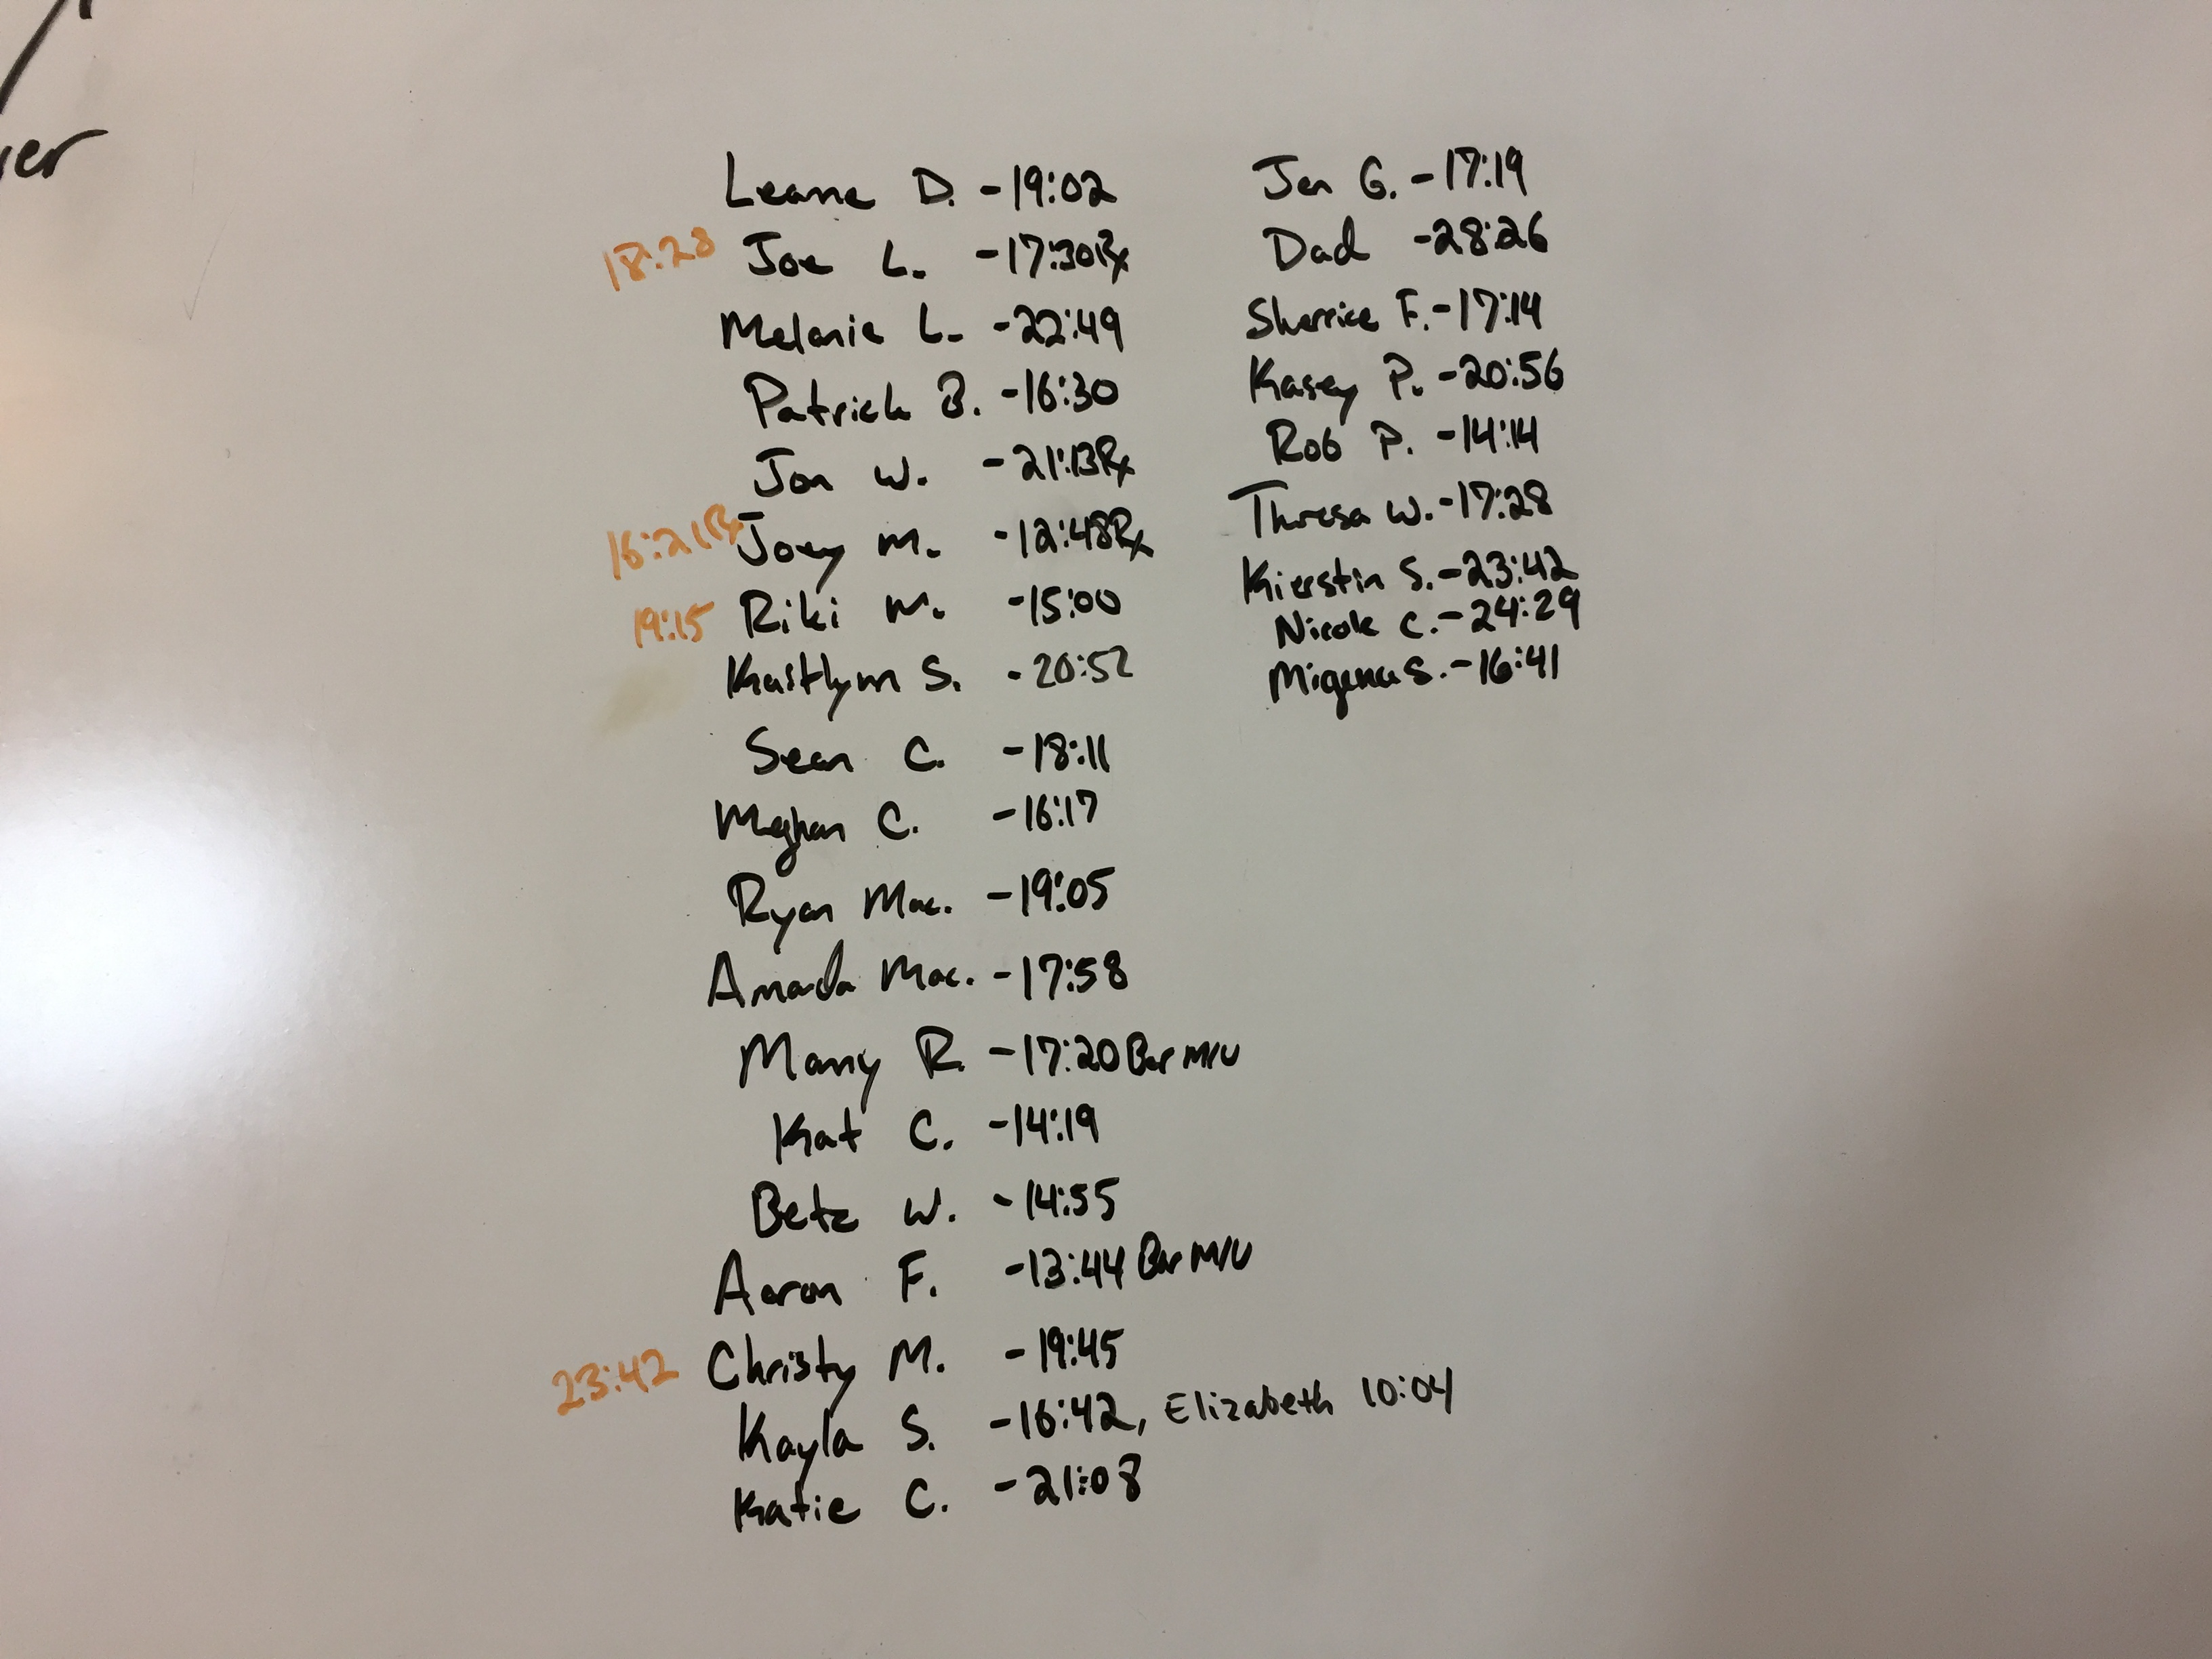 ier
Leanne D. - 19:02
18:28 Joe L. - 17:30 Rx
Melanie L. - 22:49
Patrick B. - 16:30
Jon W. - 21:13 Rx
16:21 Rx Joey M. - 12:48 Rx
19:15 Riki M. - 15:00
Kaitlynn S. - 20:52
Sean C. - 18:11
Meghan C. - 16:17
Ryan Mac. - 19:05
Amanda Mac. - 17:58
Manny R. - 17:20 Bar M/U
Kat C. - 14:19
Betz W. - 14:55
Aaron F. - 13:44 Bar M/U
23:42 Christy M. - 19:45
Kayla S. - 16:42, Elizabeth 10:04
Katie C. - 21:08
Jen G. - 17:19
Dad - 28:26
Sherrice F. - 17:14
Kasey P. - 20:56
Rob P. - 14:14
Thresa W. - 17:28
Kierstin S. - 23:42
Nicole C. - 24:29
Migena S. - 16:41